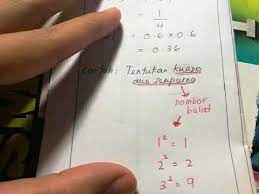 = 1
4
= 0.6 × 0.6
= 0.36
Contoh: Tentukan kuasa
dua sempurna
nombor
bulat
1² = 1
2² = 2
3² = 9